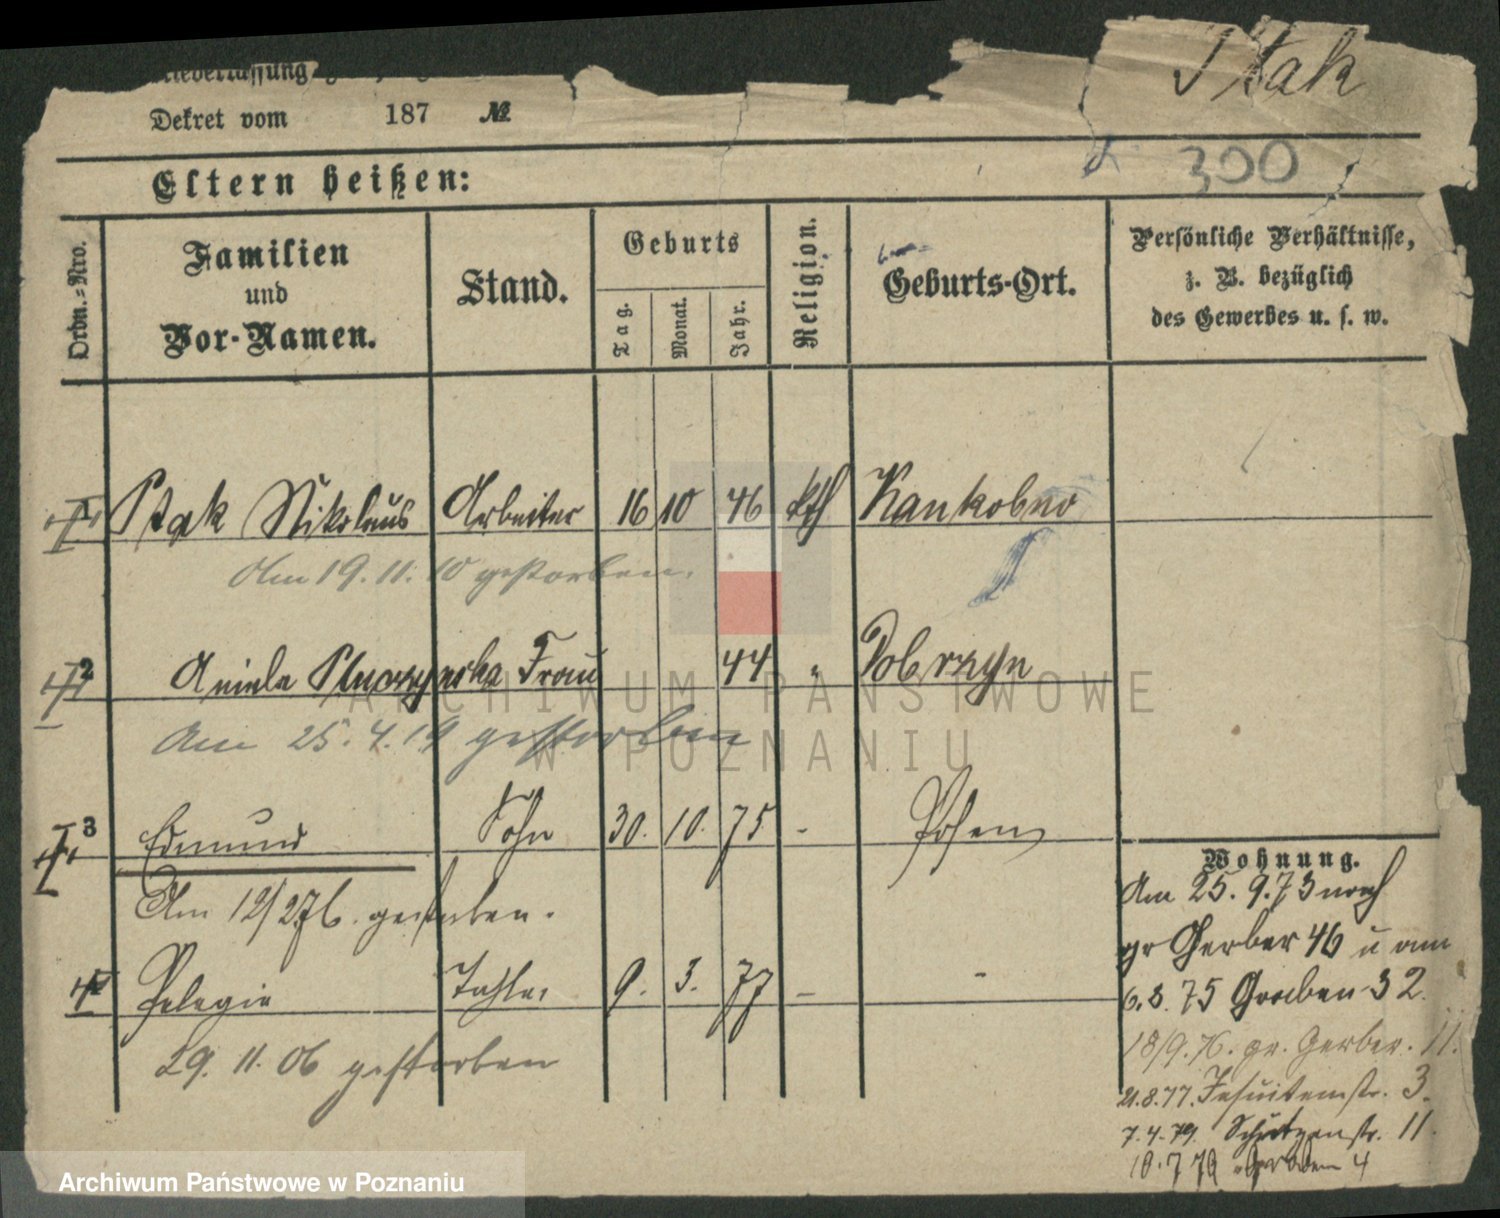 Ptak
Niederlassung
Dekret vom 187 №
300
Eltern heißen:
Ordn.-Nro.
Familien
und
Vor-Namen.
Stand.
Geburts
Tag.
Monat.
Jahr.
Religion.
Geburts-Ort.
Persönliche Verhältnisse,
z. B. bezüglich
des Gewerbes u. s. w.
1 Ptak Nikolaus Arbeiter 16 10 46 kth
Am 19. 11. 10 gestorben.
2 Aniela Frau 44 " Dobrzyn
Am 25. 4. 19 gestorben
3 Edmund Sohn 30. 10. 75 - Posen
Am 12/2 76. gestorben.
4 Pelagia Tochter 9. 3. 77 - -
29. 11. 06 gestorben
Wohnung.
Am 25. 9. 73 noch
gr Gerber 46 u am
6. 8. 75 Graben 32.
18/9. 76. gr. Gerber. 11.
21.8.77. Jesuitenstr. 3.
7.4.79. Schützenstr. 11.
10.7 79 Graben 4
ARCHIWUM PAŃSTWOWE
W POZNANIU
Archiwum Państwowe w Poznaniu